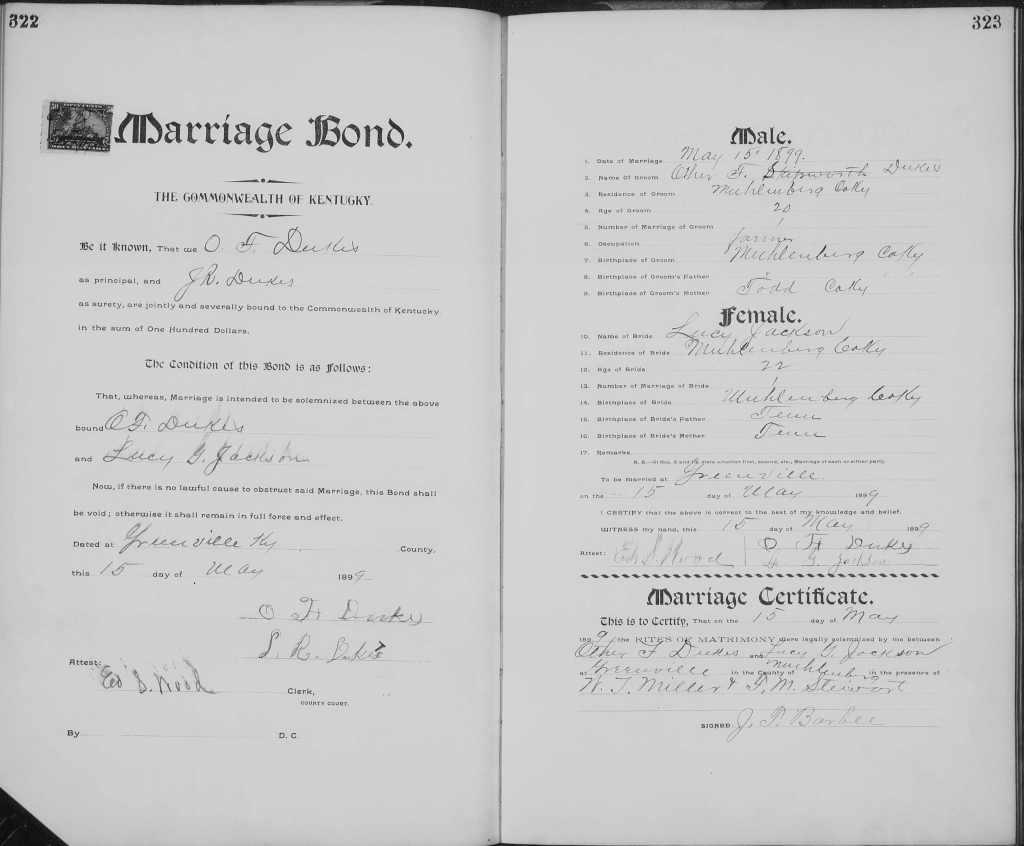 322
50 FIFTY CENTS 50
Marriage Bond.
THE COMMONWEALTH OF KENTUCKY.
Be it Known, That we O. F. Dukes
as principal, and J.R. Dukes
as surety, are jointly and severally bound to the Commonwealth of Kentucky
in the sum of One Hundred Dollars.
The Condition of this Bond is as Follows:
That, whereas, Marriage is intended to be solemnized between the above
bound O.F. Dukes
and Lucy G. Jackson
Now, if there is no lawful cause to obstruct said Marriage, this Bond shall
be void; otherwise it shall remain in full force and effect.
Dated at Greenville Ky County,
this 15 day of May 1899
O F Dukes
R. Dukes
Attest:
Ed S. Wood Clerk,
COUNTY COURT.
By D. C.
323
Male.
1. Date of Marriage May 15 1899.
2. Name Of Groom Other F. Skipworth Dukes
3. Residence of Groom Muhlenberg CoKy
4. Age of Groom 20
5. Number of Marriage of Groom 1
6. Occupation farmer
7. Birthplace of Groom Muhlenburg CoKy
8. Birthplace of Groom's Father " " "
9. Birthplace of Groom's Mother Todd CoKy
Female.
10. Name of Bride Lucy Jackson
11. Residence of Bride Muhlenburg CoKy
12. Age of Bride 22
13. Number of Marriage of Bride 1
14. Birthplace of Bride Muhlenberg CoKy
15. Birthplace of Bride's Father Tenn
16. Birthplace of Bride's Mother Tenn
17. Remarks
N. B.—At Nos. 5 and 13, state whether first, second, etc., Marriage of each or either party.
To be married at Greenville
on the 15 day of May 1899
I CERTIFY that the above is correct to the best of my knowledge and belief.
WITNESS my hand, this 15 day of May 1899
Attest: Ed S. Wood O F Dukes
G. Jackson
Marriage Certificate.
This is to Certify, That on the 15 day of May
1899 the RITES OF MATRIMONY were legally solemnized by me between
Other F. Dukes and Lucy G. Jackson
at Greenville in the County of Muhlenburg in the presence of
W. J. Miller & T. M. Stewart
SIGNED J. P. Barbee